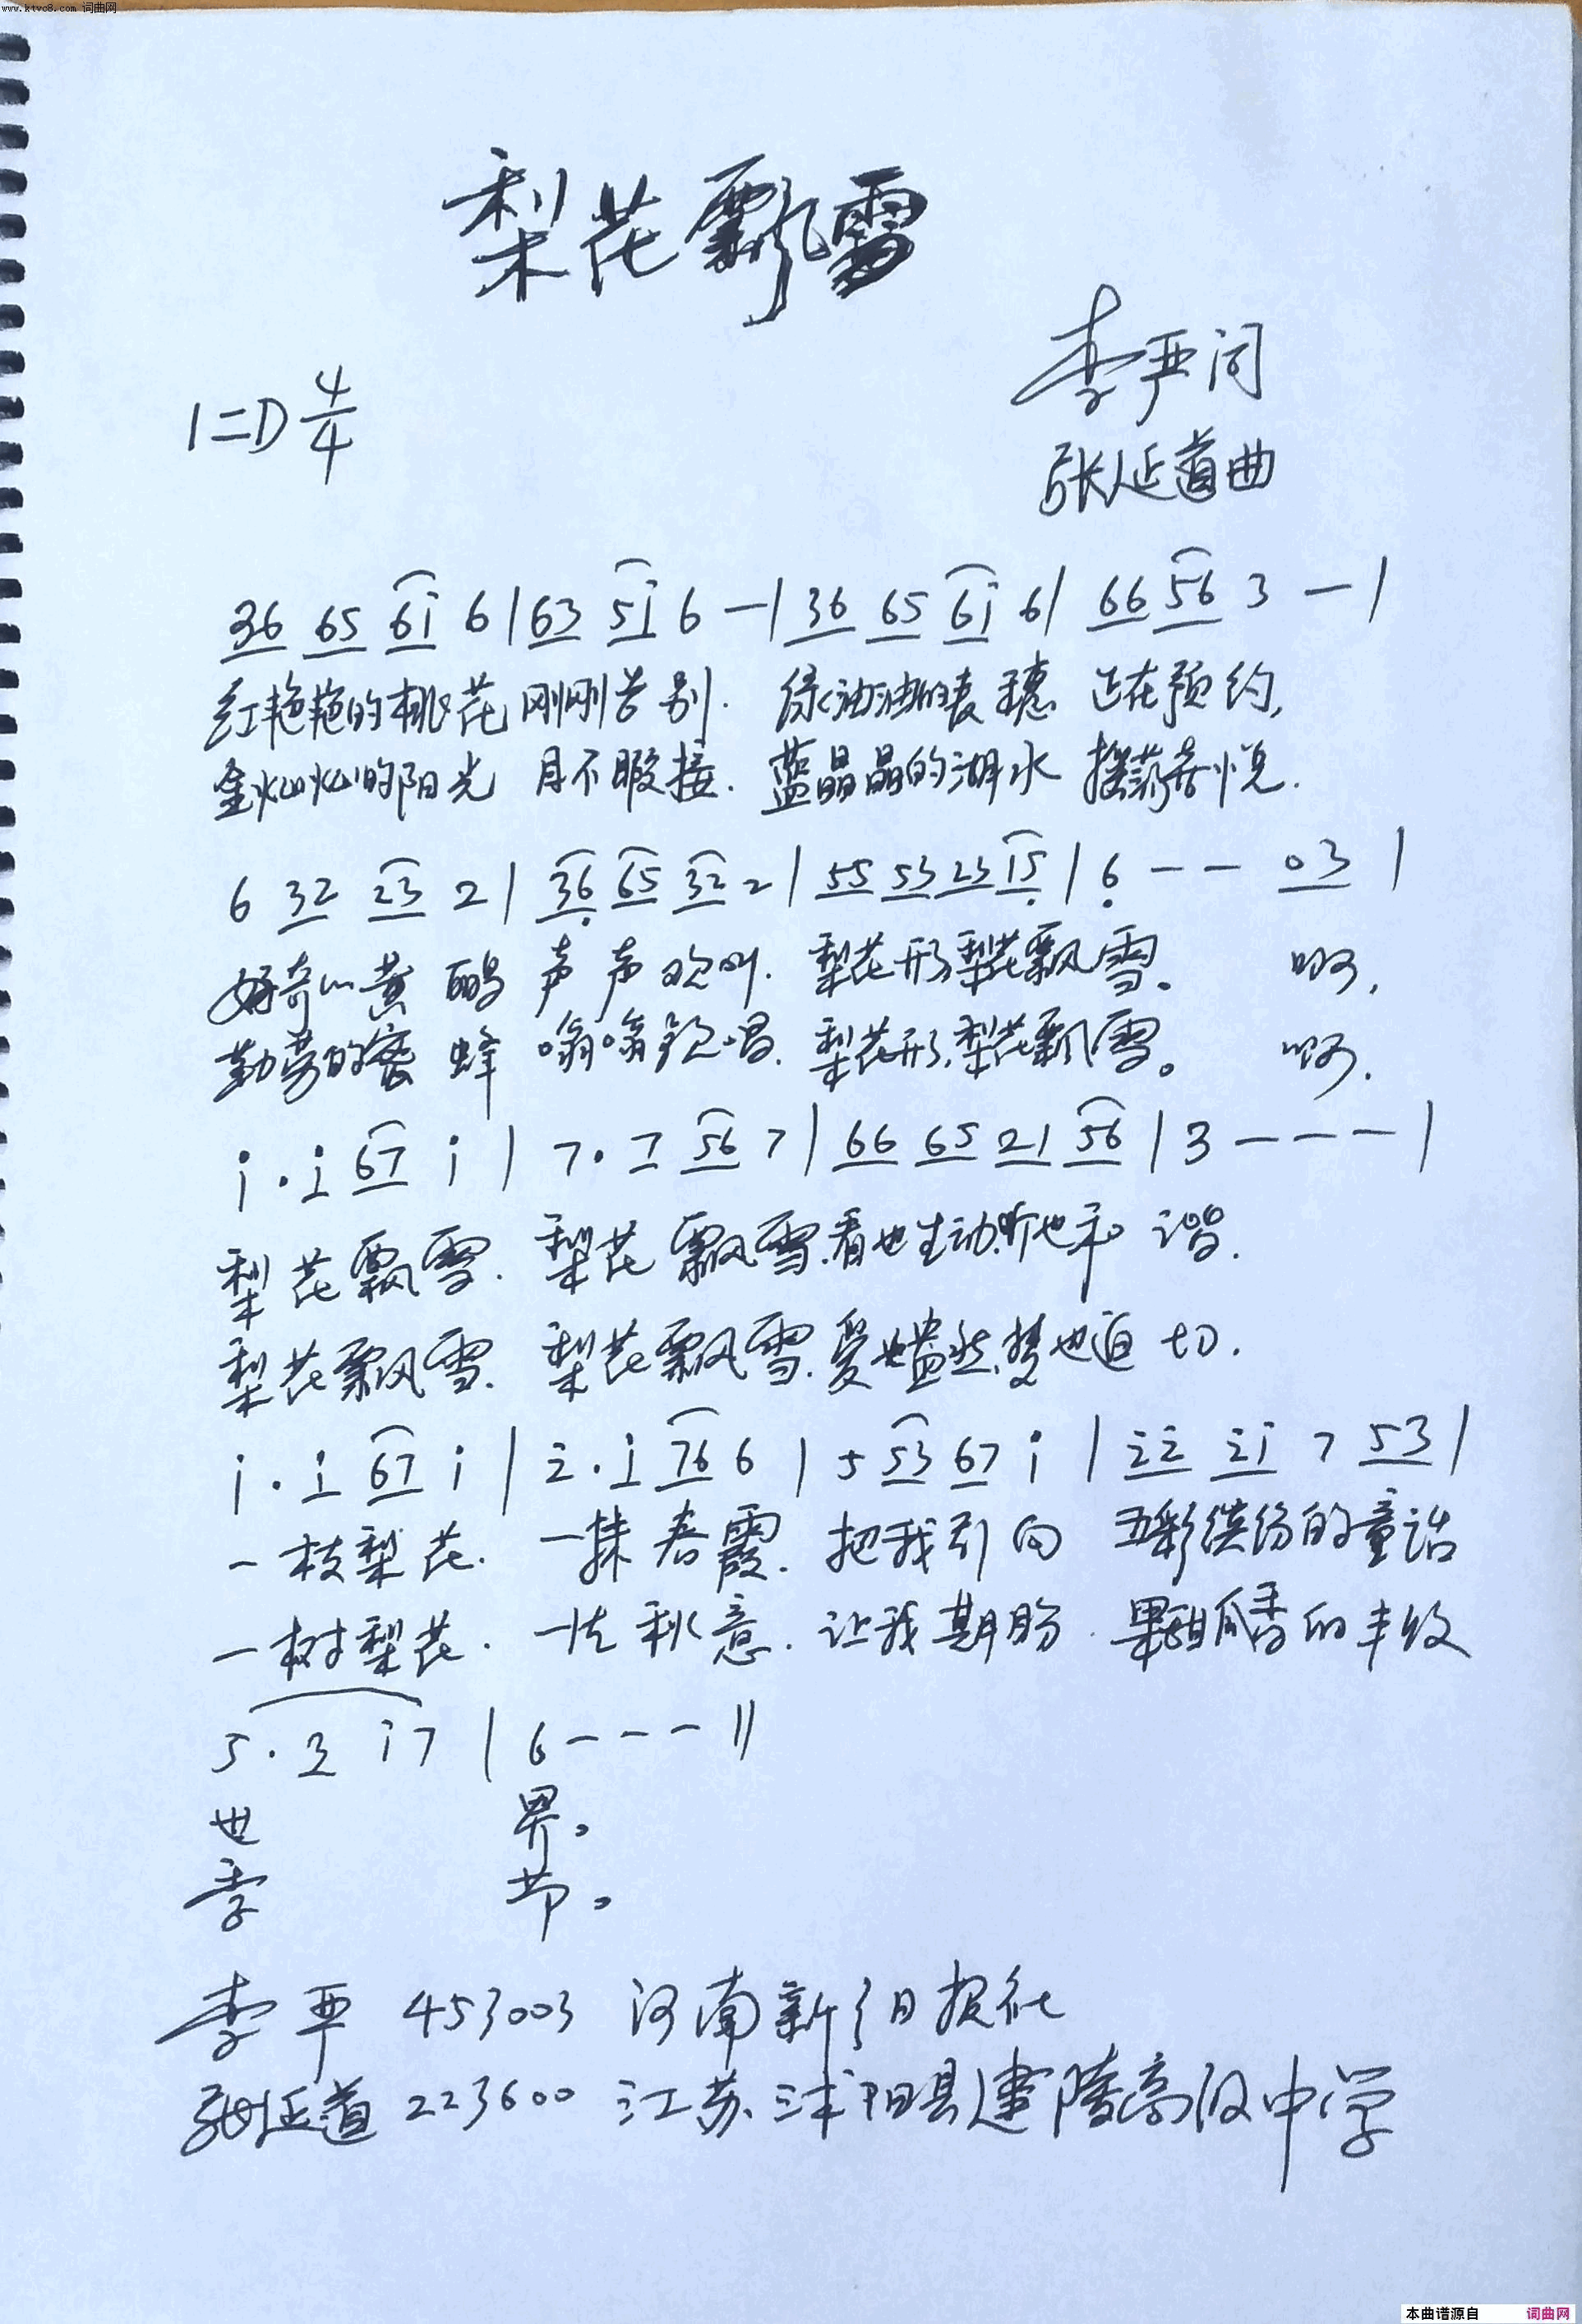 www.ktvc8.com 词曲网
梨花飘雪
李严词
1=D 4/4
张延道曲
36 65 61̇ 6 | 63 51̇ 6 — | 36 65 61̇ 6 | 66 56 3 — |
红艳艳的桃花 刚刚告别. 绿油油的麦穗 正在预约,
金灿灿的阳光 目不暇接. 蓝晶晶的湖水 摇荡喜悦.
6 32 23 2 | 36̣ 65 32 2 | 55 53 23 15̣ | 6̣ — — 03 |
好奇的黄鹂 声声欢叫. 梨花形梨花飘雪。 啊,
勤劳的蜜蜂 嗡嗡歌唱. 梨花形,梨花飘雪。 啊.
1̇ · 1̇ 67 1̇ | 7 · 7 56 7 | 66 65 21 56 | 3 — — — |
梨花飘雪. 梨花飘雪.看也生动.听也和谐.
梨花飘雪. 梨花飘雪.爱也盎然.梦也迫切.
1̇ · 1̇ 67 1̇ | 2̇ · 1̇ 76 6 | 5 53 67 1̇ | 2̇2̇ 2̇1̇ 7 53 |
一枝梨花. 一抹春霞. 把我引向 五彩缤纷的童话
一树梨花. 一片秋意. 让我期盼. 果甜瓜香的丰收
5 · 3 1̇7 | 6 — — — ||
世 界。
季 节。
李严 453003 河南新乡日报社
张延道 223600 江苏沭阳县建陵高级中学
本曲谱源自 词曲网